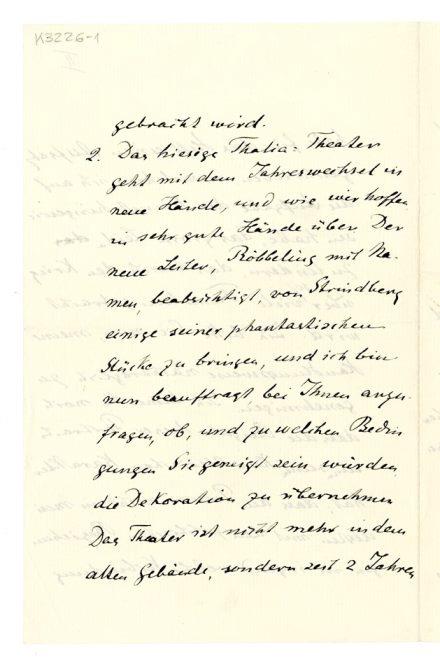 K3226-1
II
gebracht wird.
2. Das hiesige Thalia-Theater
geht mit dem Jahreswechsel in
neue Hände, und wie wir hoffen
in sehr gute Hände über. Der
neue Leiter, Röbbeling mit Na-
men, beabsichtigt, von Strindberg
einige seiner phantastischen
Stücke zu bringen, und ich bin
nun beauftragt bei Ihnen anzu-
fragen, ob, und zu welchen Bedin
gungen Sie geneigt sein würden,
die Dekoration zu übernehmen
Das Theater ist nicht mehr in dem
alten Gebäude, sondern seit 2 Jahren